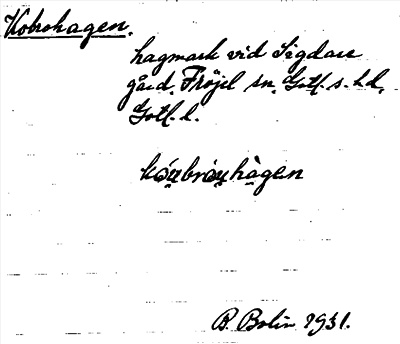 Kobrohagen.
hagmark vid Sigdars
gård, Fröjel sn, Gotl. s. hd,
Gotl. l.
kóu̯bròu̯hàgen
B. Bolin 1931.